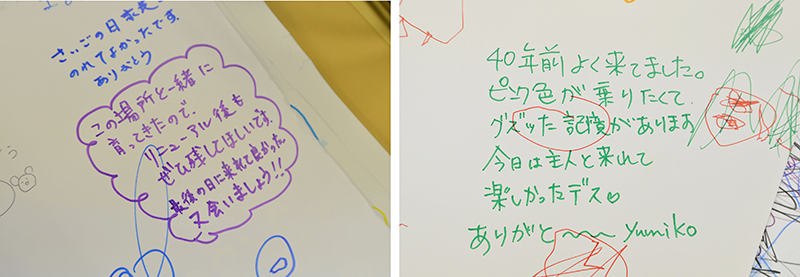 さいごの日 来れて
のれてよかったです。
ありがとう
この場所と一緒に
育ってきたので、
リニューアル後も
ぜひ残してほしいです。
最後の日に来れて良かった
又会いましょう!!
40年前よく来てました。
ピンク色が乗りたくて
グズッた記憶があります
今日は主人と来れて
楽しかったデス♡
ありがと〜〜〜 yumiko